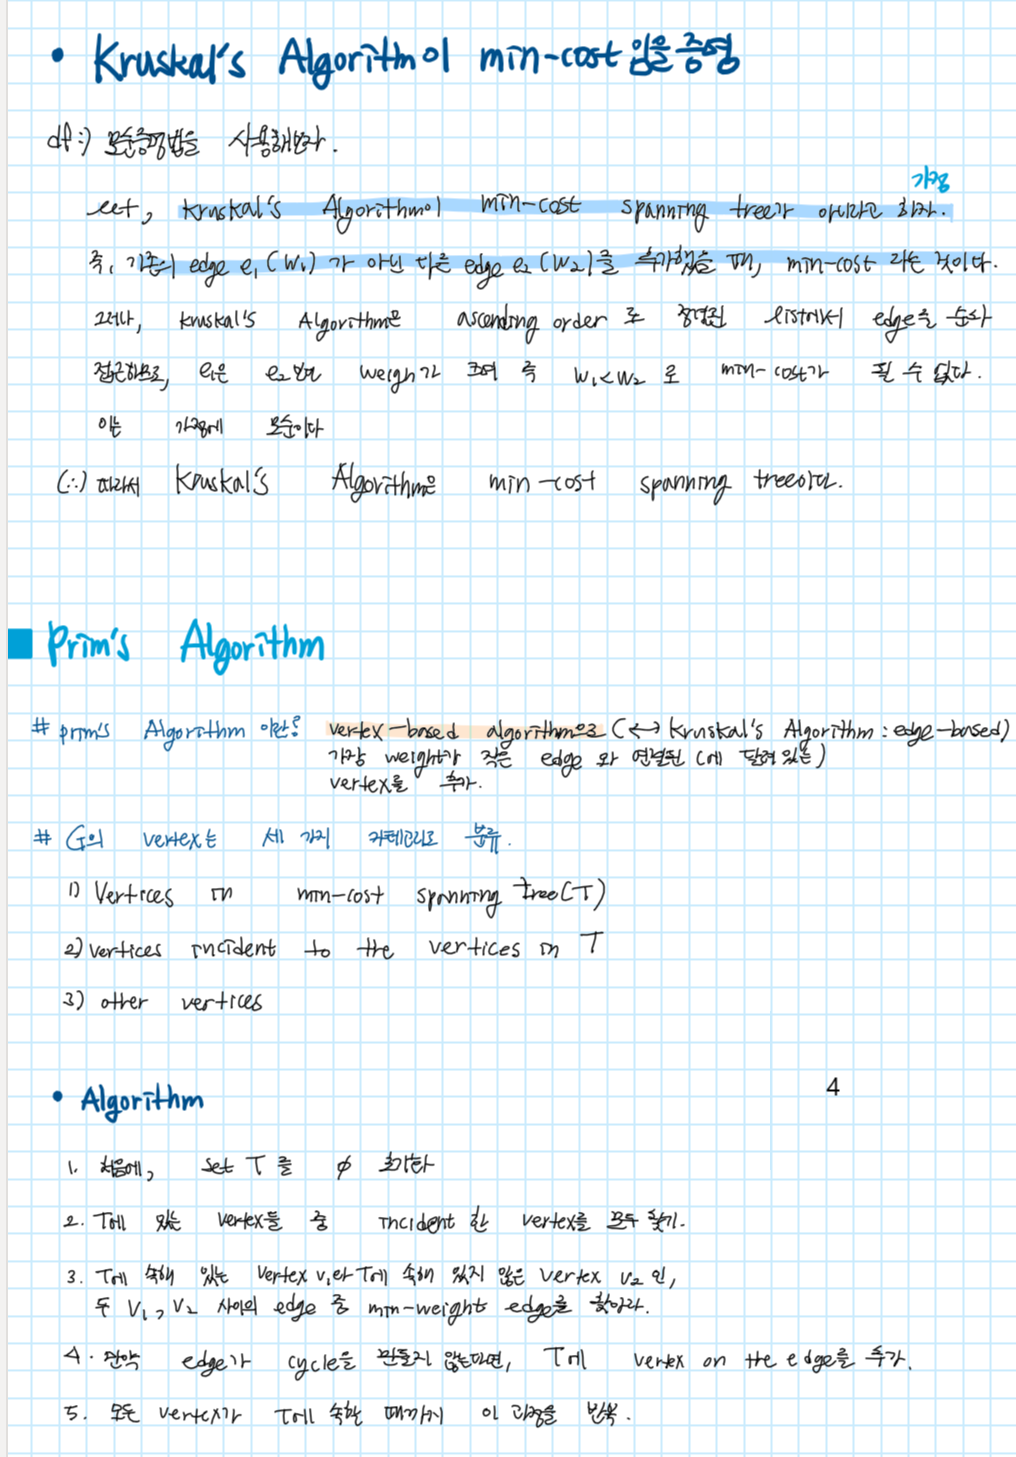 • Kruskal's Algorithm이 min-cost임을 증명
df:) 모순증명법을 사용해보자.
가정
let, Kruskal's Algorithm이 min-cost spanning tree가 아니라고 하자.
즉, 기존의 edge e₁(W₁)가 아닌 다른 edge e₂(W₂)를 추가했을 때, min-cost 라는 것이다.
그러나, Kruskal's Algorithm은 ascending order 로 정렬된 list에서 edge을 순차
접근하므로, e₁은 e₂보다 weigh가 크며 즉 W₁<W₂ 로 min-cost가 될 수 없다.
이는 가정에 모순이다
(∴) 따라서 Kruskal's Algorithm은 min-cost spanning tree이다.
■ Prim's Algorithm
# prim's Algorithm 이란? vertex-based algorithm으로 (↔ Kruskal's Algorithm : edge-based)
가장 weight가 작은 edge 와 연결된 (에 달려있는)
vertex를 추가.
# G의 vertex는 세 가지 카테고리로 분류.
1) Vertices in min-cost spanning tree(T)
2) vertices incident to the vertices in T
3) other vertices
• Algorithm
4
1. 처음에, set T를 ∅ 초기화
2. T에 있는 vertex들 중 incident 한 vertex를 모두 찾기.
3. T에 속해 있는 vertex v₁와 T에 속해 있지 않은 vertex v₂ 인,
두 V₁, V₂ 사이의 edge 중 min-weight edge를 찾아라.
4. 만약 edge가 cycle을 만들지 않는다면, T에 vertex on the edge를 추가.
5. 모든 vertex가 T에 속할 때까지 이 과정을 반복.